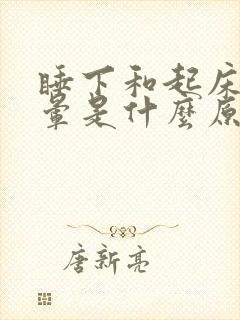 睡下和起床
晕是什麽原
唐新亮